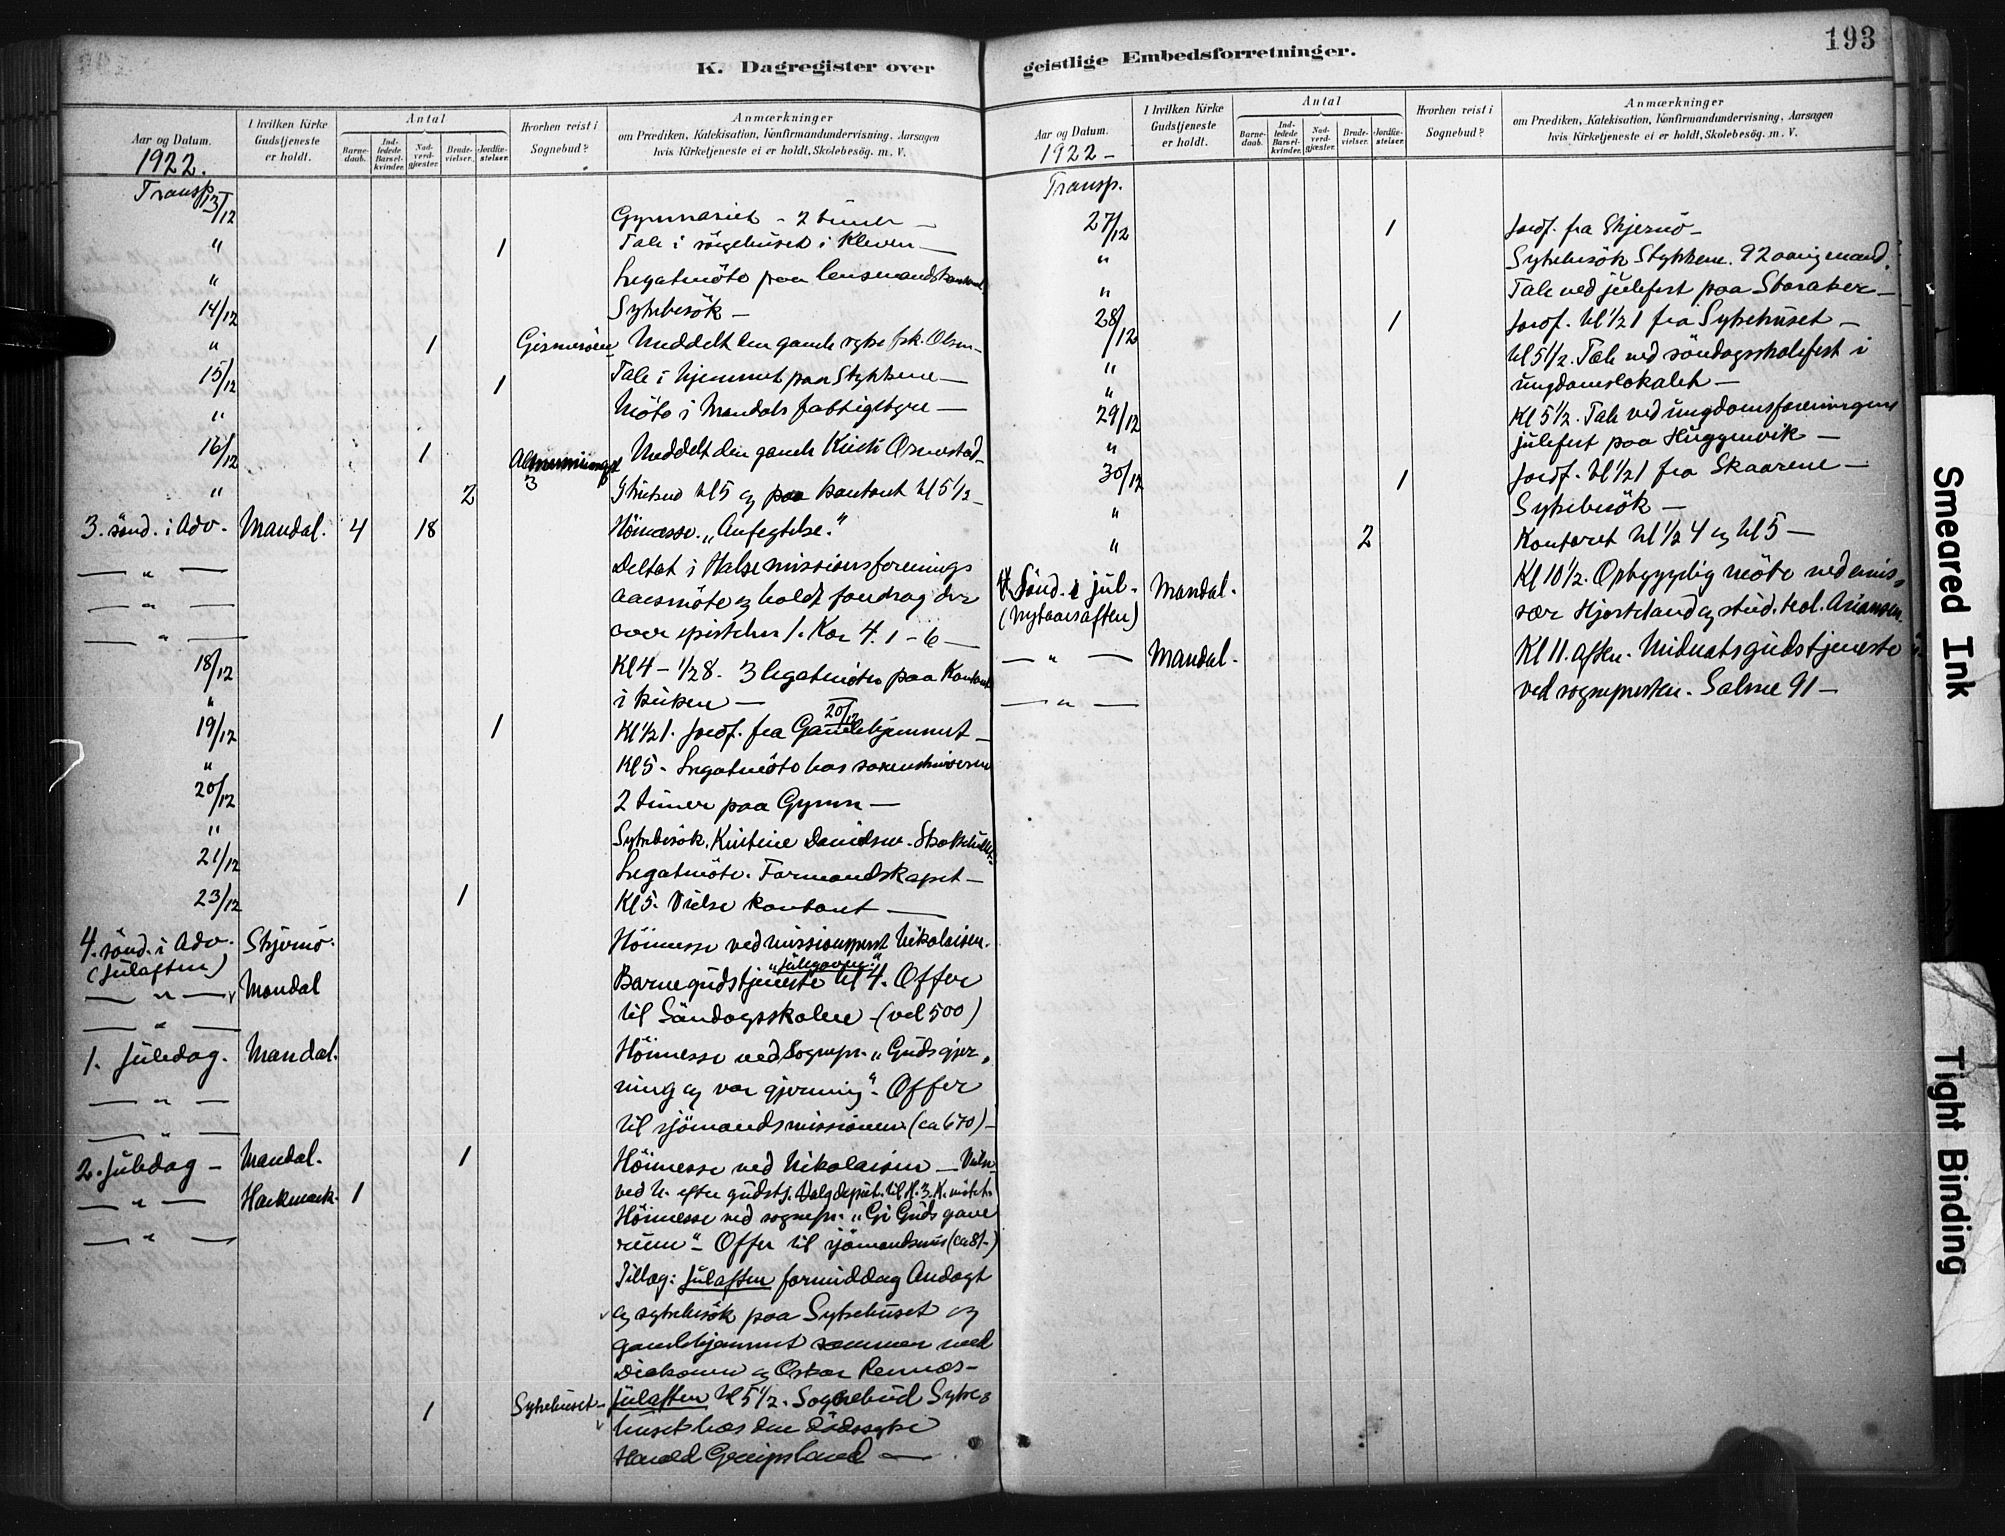 K. Dagregister over
Aar og Datum.
I hvilken Kirke Gudstjeneste er holdt.
Antal
Barnedaab.
Indledede Barselkvinder.
Nadverdgjæster.
Brudevielser.
Jordfæstelser.
Hvorhen reist i Sognebud?
Anmærkninger
om Prædiken, Katekisation, Konfirmandundervisning, Aarsagen
hvis Kirketjeneste ei er holdt, Skolebesög. m. V.
1922.
Transp.
13/12 Gymnasiet - 2 timer -
" 1 Tale i sörgehuset i Kleven -
" Legatmöte paa lensmandskontoret
14/12 Sykebesök -
" 1 Meddelt den gamle syke fsk. Olsen -
15/12 1 Tale i hjemmet paa Stykkene -
" Möte i Mandals fattigstyre -
16/12 1 Meddelt den gamle
" 2 kl 5 og paa kontoret kl 5 1/2 -
3. sönd. i Adv. Mandal. 4 18 Höimesse. "Anfegtelse."
— " — Deltat i Halse missionsforenings
— " — aarsmöte og holdt foredrag der
— " — over epistelen 1. Kor 4. 1-6 -
18/12 Kl 4 - 1/2 8. 3 legatmöter paa Kontoret
" i kirken -
19/12 1 Kl 1/2 1. Jordf. fra Gamlehjemmet - 20/12
" Kl 5. Legatmöte hos sorenskriveren
20/12 2 timer paa Gymn -
" Sykebesök. Kristine Davidsen.
21/12 Legatmöte. Formandskapet -
23/12 1 Kl 5. Vielse kontoret -
4. sönd. i Adv. Skjernö. Höimesse ved missionsprest Nikolaisen.
(Julaften)
"Julegaven."
— " — Mandal Barnegudstjeneste kl 4. Offer
— " — til Söndagsskolen - (vel 500)
1. Juledag. Mandal. Höimesse ved Sognepr. "Guds gjer-
— " — ning og vor gjerning". Offer
— " — til sjömandsmissionen (ca 670) -
2. Juledag - Mandal. 1 Höimesse ved Nikolaisen - Vielse
— " — Harkmark. 1 ved N. efter gudstj. Valg deput. til K. 3. K. mötet.
Höimesse ved sognepr. "Gi Guds gave
— " — rum" - Offer til sjömandsmis (ca 81-)
Tillæg: Julaften formiddag Andagt
og sykebesök paa Sykehuset og
gamlehjemmet sammen med
Diakonen og Oskar
1 Sykehuset - Julaften kl 5 1/2. Sognebud Syke-
huset hos den dödssyke
Harald
geistlige Embedsforretninger.
193
Aar og Datum.
I hvilken Kirke Gudstjeneste er holdt.
Antal
Barnedaab.
Indledede Barselkvinder.
Nadverdgjæster.
Brudevielser.
Jordfæstelser.
Hvorhen reist i Sognebud?
Anmærkninger
om Prædiken, Katekisation, Konfirmandundervisning, Aarsagen
hvis Kirketjeneste ei er holdt, Skolebesög. m. V.
1922 -
Transp.
27/12 1 Jordf. fra Skjernö -
" Sykebesök Stykkene. 92 aarig mand.
" Tale ved julefest paa Storaker -
28/12 1 Jordf. kl 1/2 1 fra Sykehuset -
kl 5 1/2. Tale ved söndagsskolefest i
" ungdomslokalet -
"
29/12 Kl 5 1/2. Tale ved ungdomsforeningens
" julefest paa Huggenvik -
30/12 1 Jordf. kl 1/2 1 fra Skaarene -
" Sykebesök -
" 2 Kontoret kl 1/2 4 og kl 5 -
Sönd. i jul - Mandal. Kl 10 1/2. Opbyggelig möte ved emis-
(nytaarsaften) sær Hjorteland og stud. teol.
— " — Mandal. Kl 11. Aften. Midnatsgudstjeneste
— " — ved sognepresten. Salme 91 -
Smeared Ink
Tight Binding